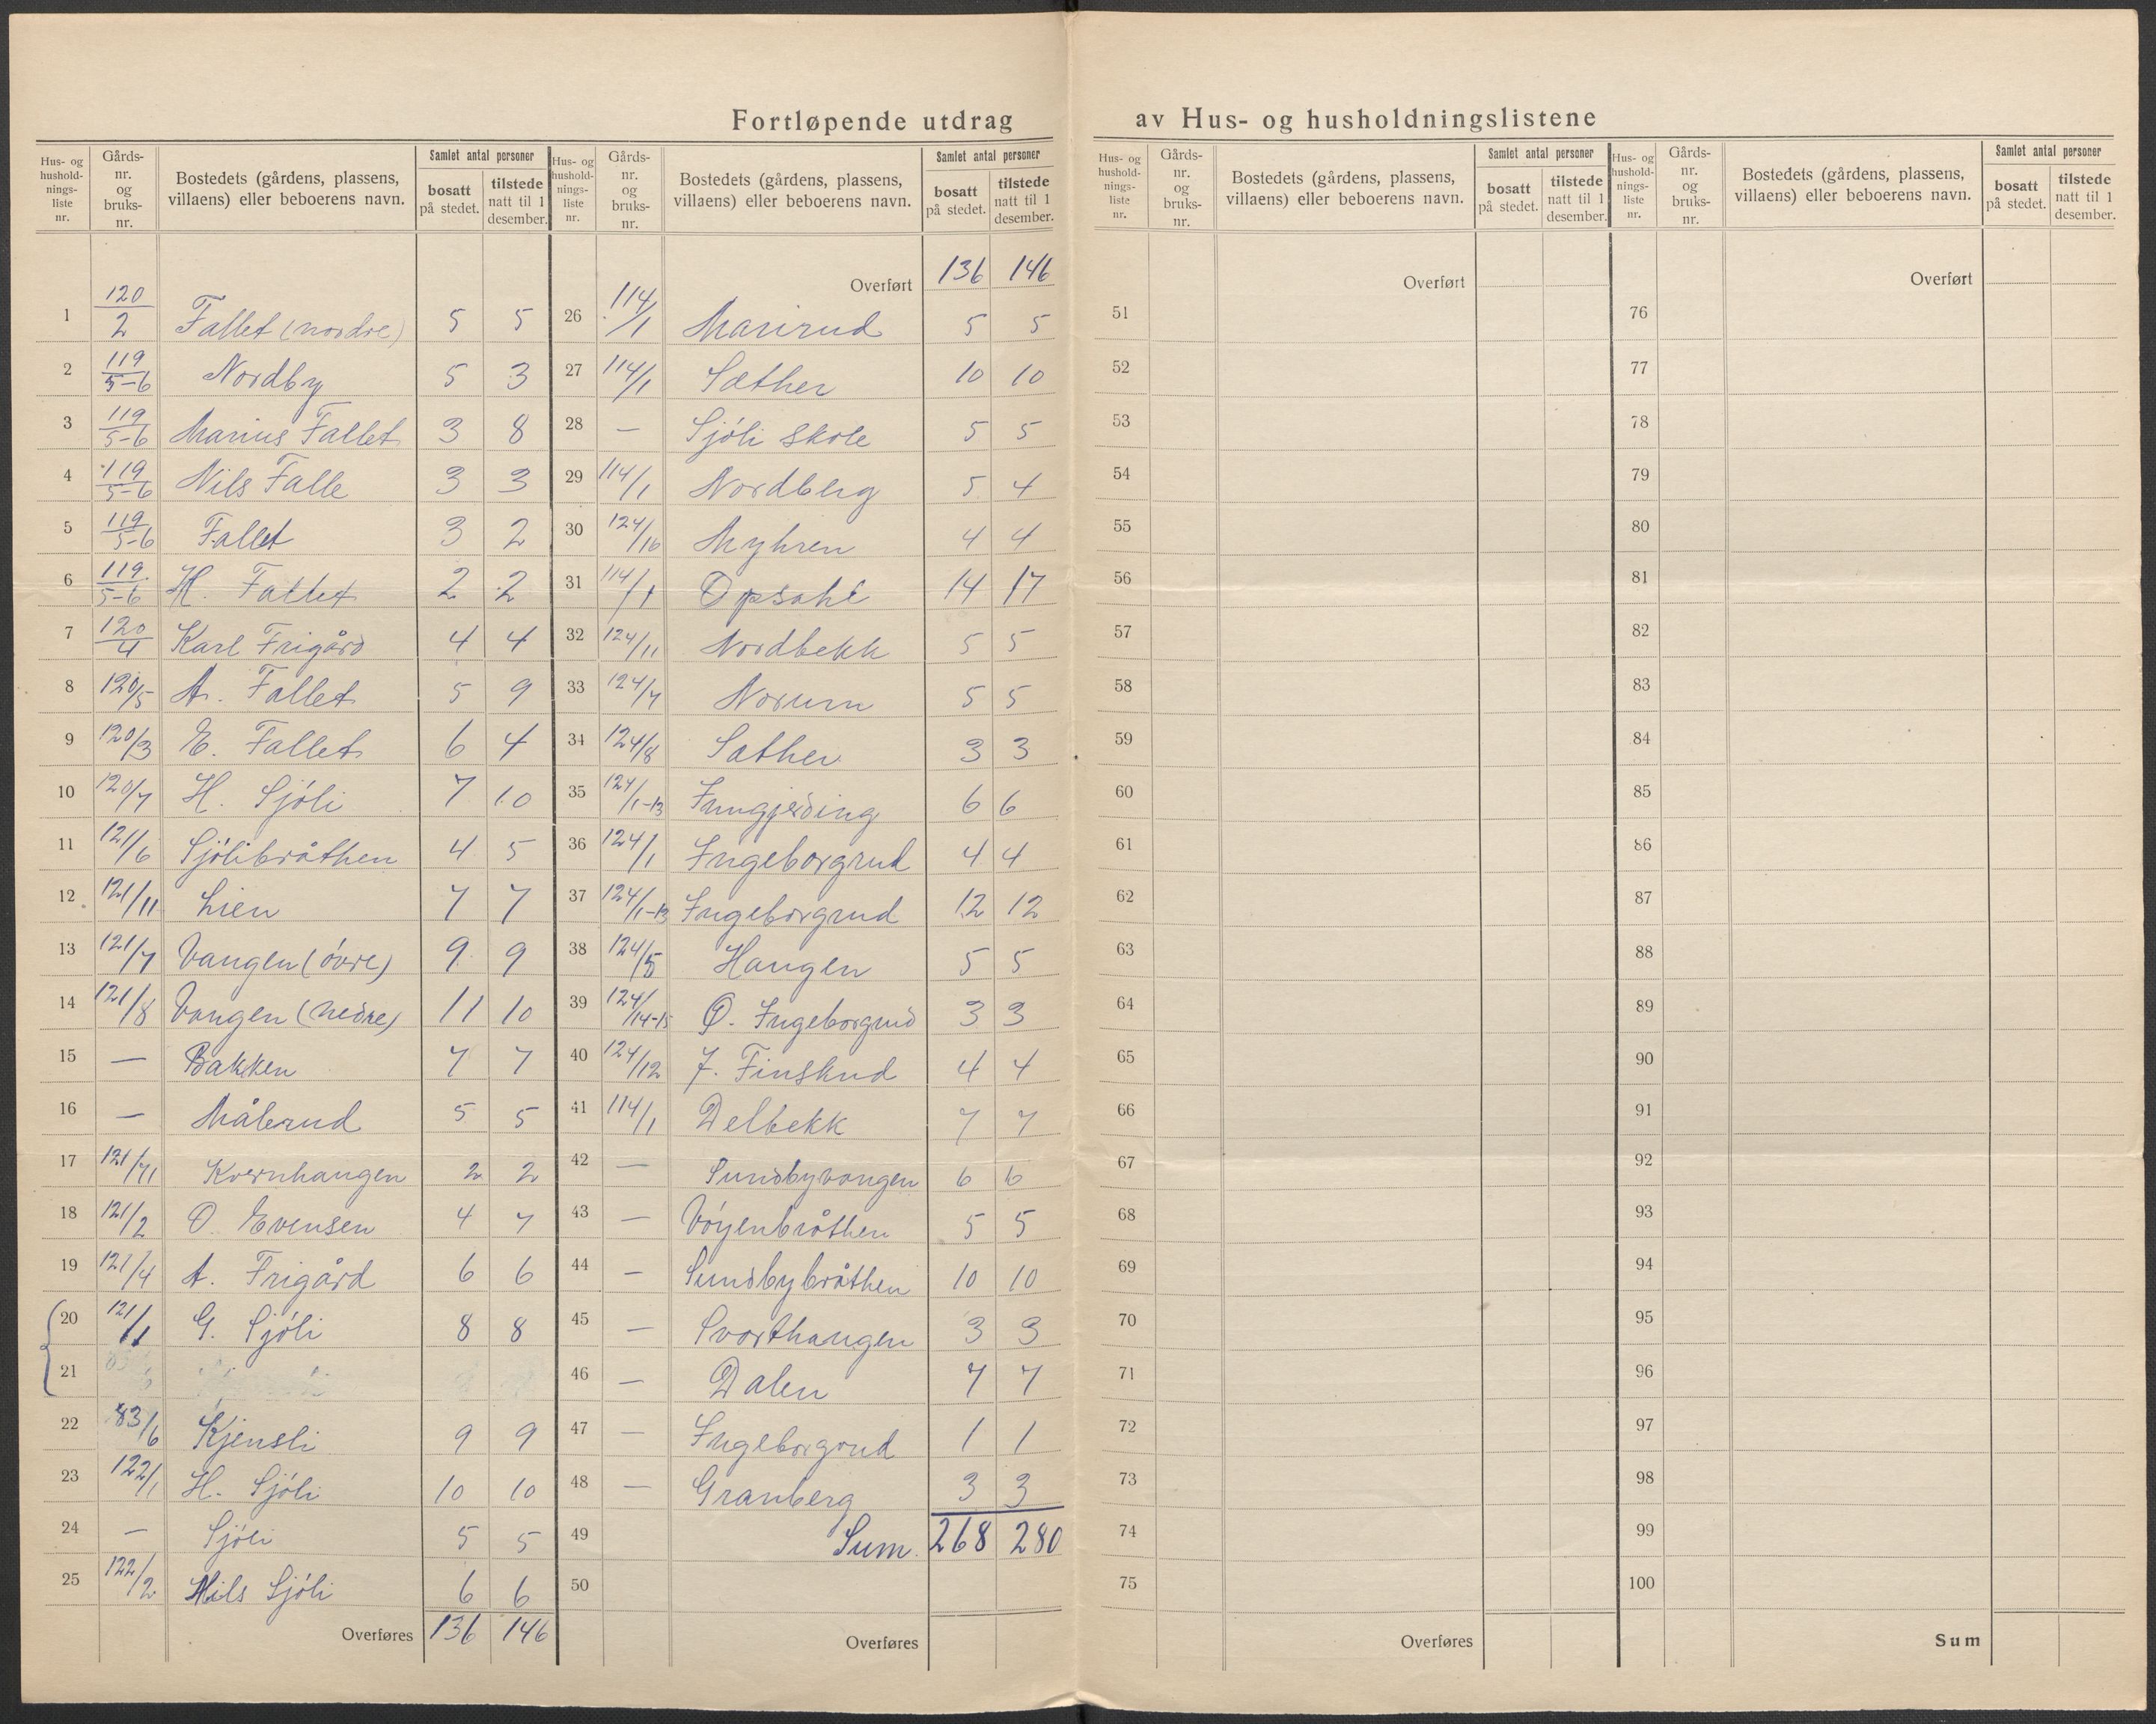 Fortløpende utdrag av Hus- og husholdningslistene
Hus- og hushold-nings-liste nr. | Gårds-nr. og bruks-nr. | Bostedets (gårdens, plassens, villaens) eller beboerens navn. | Samlet antal personer | bosatt på stedet. | tilstede natt til 1 desember.
1 120/2 Fallet (nordre) 5 5
2 119/5-6 Nordby 5 3
3 119/5-6 Marius Fallet 3 8
4 119/5-6 Nils Falle 3 3
5 119/5-6 Fallet 3 2
6 119/5-6 H. Fallet 2 2
7 120/4 Karl Frigård 4 4
8 120/5 A. Fallet 5 9
9 120/3 E. Fallet 6 4
10 120/7 H. Sjöli 7 10
11 121/6 Sjölibråthen 4 5
12 121/11 Lien 7 7
13 121/7 Vangen (övre) 9 9
14 121/8 Vangen (nedre) 11 10
15 — Bakken 7 7
16 — Målerud 5 5
17 121/ Kvernhaugen 2 2
18 121/2 O. Evensen 4 7
19 121/4 A. Frigård 6 6
20 121/1 G. Sjöli 8 8
21
22 83/6 Kjensli 9 9
23 122/1 H. Sjöli 10 10
24 — Sjöli 5 5
25 122/2 Nils Sjöli 6 6
Overføres 136 146
Hus- og hushold-nings-liste nr. | Gårds-nr. og bruks-nr. | Bostedets (gårdens, plassens, villaens) eller beboerens navn. | Samlet antal personer | bosatt på stedet. | tilstede natt til 1 desember.
Overført 136 146
26 114/1 Marirud 5 5
27 114/1 Sæther 10 10
28 — Sjöli Skole 5 5
29 114/1 Nordberg 5 4
30 124/16 Myhren 4 4
31 114/1 Opsahl 14 17
32 124/11 Nordbekk 5 5
33 124/7 Norum 5 5
34 124/8 Sæther 3 3
35 124/1-13 6 6
36 124/1 Ingeborgrud 4 4
37 124/1-13 Ingeborgrud 12 12
38 124/5 Haugen 5 5
39 124/14-15 O. Ingeborgrud 3 3
40 124/12 J. Finskud 4 4
41 114/1 Delbekk 7 7
42 — Sundbyvangen 6 6
43 — Vöyenbråthen 5 5
44 — Sundbybråthen 10 10
45 — Svarthaugen 3 3
46 — Dalen 7 7
47 — Ingeborgrud 1 1
48 — Granberg 3 3
49 Sum. 268 280
50
Overføres
Hus- og hushold-nings-liste nr. | Gårds-nr. og bruks-nr. | Bostedets (gårdens, plassens, villaens) eller beboerens navn. | Samlet antal personer | bosatt på stedet. | tilstede natt til 1 desember.
Overført
51
52
53
54
55
56
57
58
59
60
61
62
63
64
65
66
67
68
69
70
71
72
73
74
75
Overføres
Hus- og hushold-nings-liste nr. | Gårds-nr. og bruks-nr. | Bostedets (gårdens, plassens, villaens) eller beboerens navn. | Samlet antal personer | bosatt på stedet. | tilstede natt til 1 desember.
Overført
76
77
78
79
80
81
82
83
84
85
86
87
88
89
90
91
92
93
94
95
96
97
98
99
100
Sum